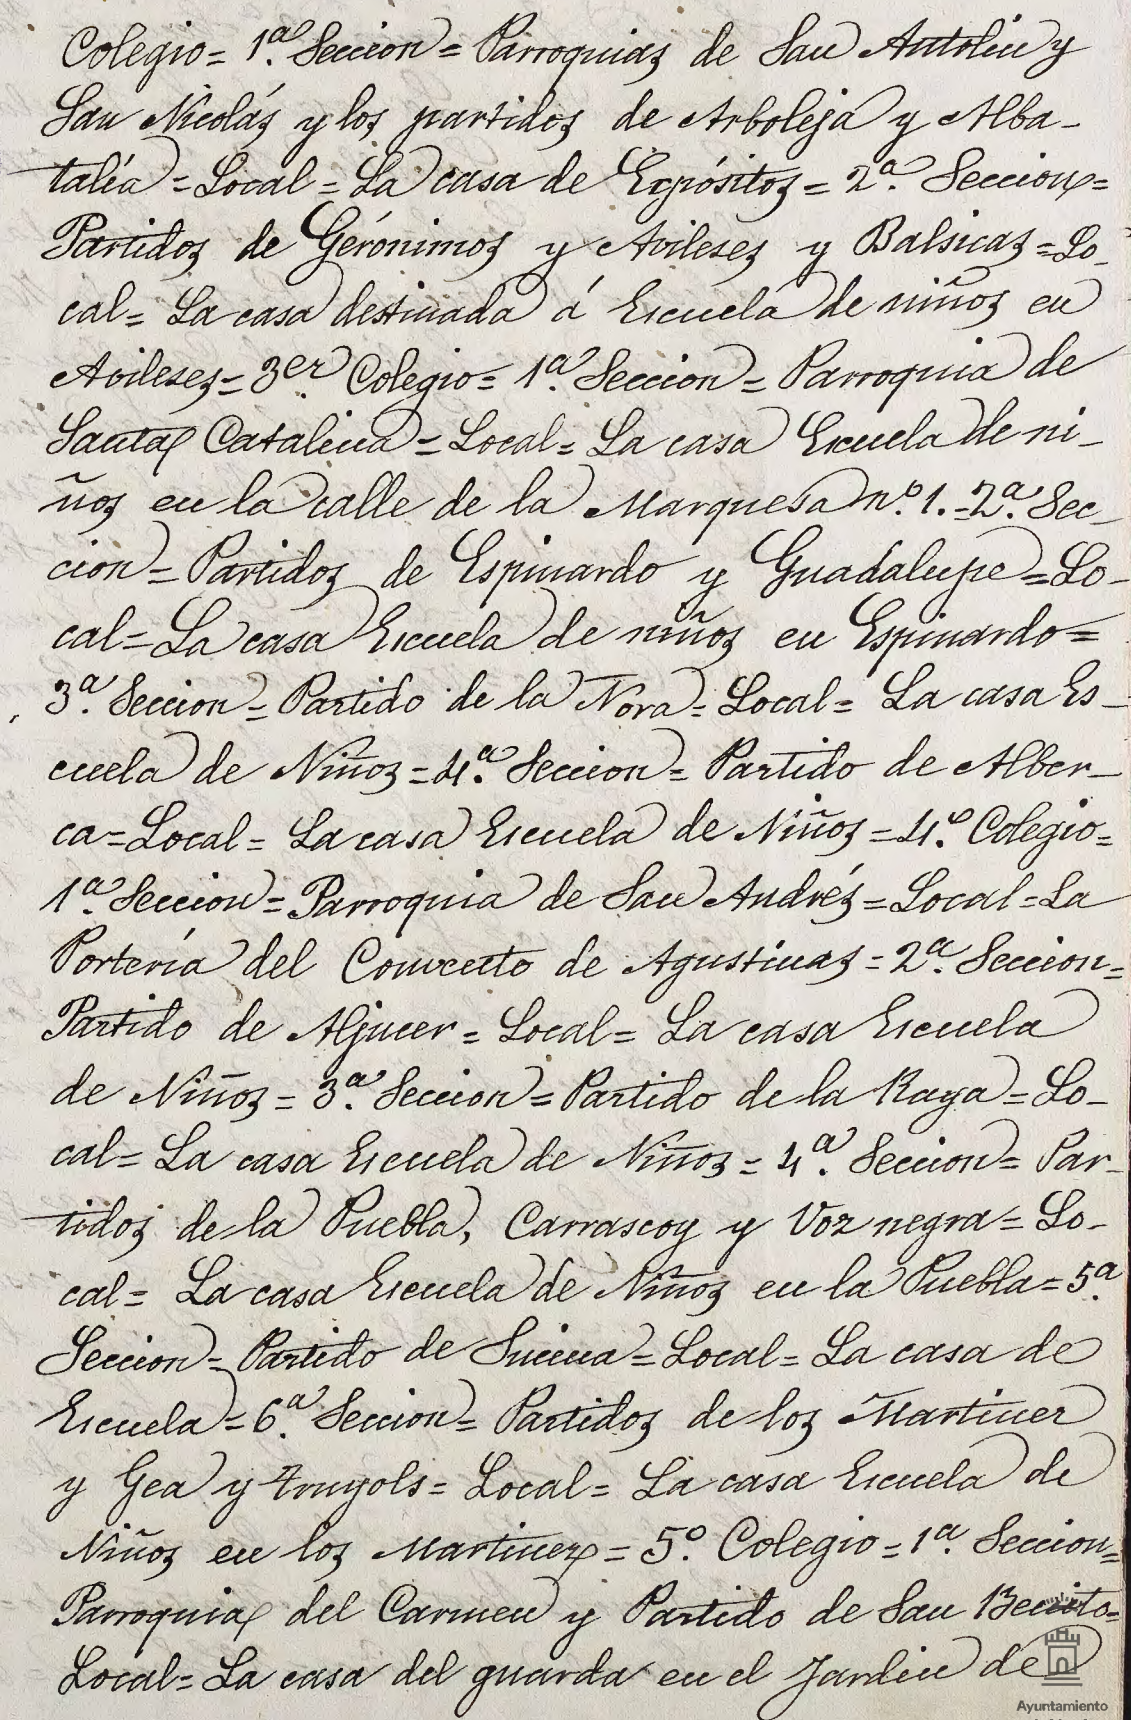 Colegio= 1ª. Seccion= Parroquias de San Antolin y
San Nicolás y los partidos de Arboleja y Alba-
talía=Local=La casa de Expósitos=2ª. Seccion=
Partidos de Gerónimos y Avileses y Balsicas=Lo-
cal= La casa destinada á Escuela de niños en
Avileses=3er. Colegio=1ª. Seccion= Parroquia de
Santa Catalina=Local=La casa Escuela de ni-
ños en la calle de la Marquesa nº.1.=2ª. Sec-
cion=Partidos de Espinardo y Guadalupe=Lo-
cal=La casa Escuela de niños en Espinardo=
3ª. Seccion=Partido de la Nora=Local= La casa Es-
cuela de Niños=4ª. Seccion= Partido de Alber-
ca=Local= La casa Escuela de Niños=4.º Colegio=
1ª. Seccion=Parroquia de San Andrés=Local=La
Portería del Convento de Agustinas=2ª. Seccion=
Partido de Aljucer= Local= La casa Escuela
de Niños=3ª. Seccion=Partido de la Raya=Lo-
cal= La casa Escuela de Niños=4ª. Seccion= Par-
tidos de la Puebla, Carrascoy y Voz negra=Lo-
cal= La casa Escuela de Niños en la Puebla=5ª.
Seccion=Partido de Sucina=Local= La casa de
Escuela=6ª. Seccion= Partidos de los Martinez
y Gea y Truyols= Local= La casa Escuela de
Niños en los Martinez=5º. Colegio=1ª. Seccion=
Parroquia del Carmen y Partido de San Benito=
Local= La casa del guarda en el Jardin de
Ayuntamiento